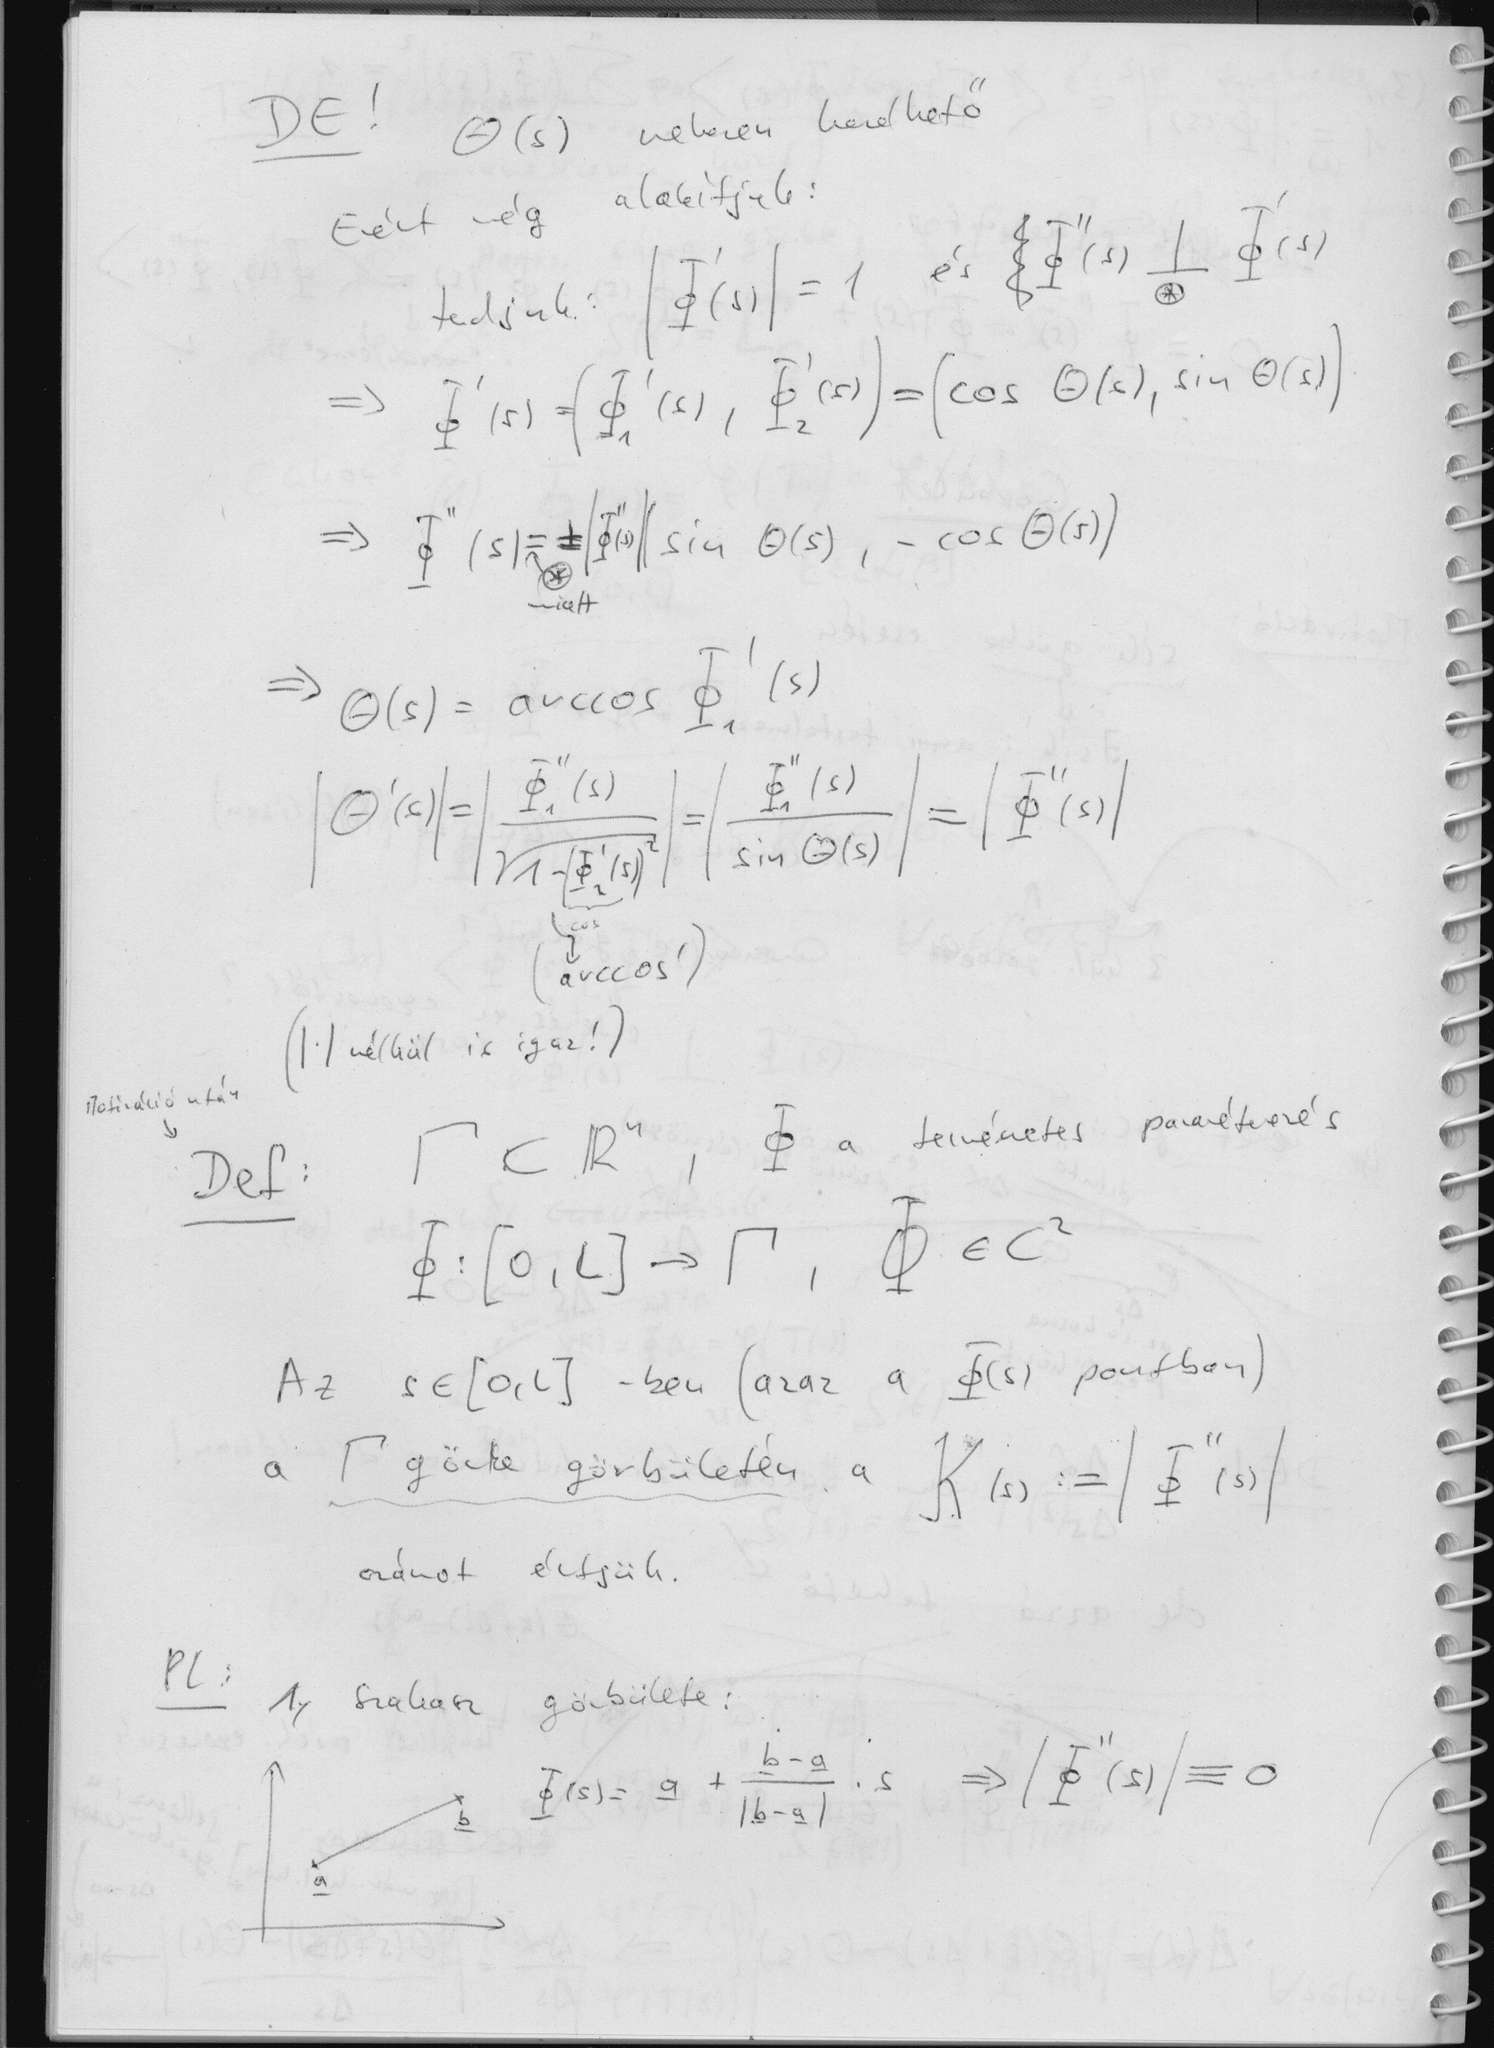 DE! Θ(s) nehezen kezelhető
Ezért még alakítjuk:
tudjuk: |Φ'(s)| = 1 és Φ''(s) ⊥ Φ'(s)
⊛
⇒ Φ'(s) = (Φ₁'(s), Φ₂'(s)) = (cos Θ(s), sin Θ(s))
⇒ Φ''(s) = ±|Φ''(s)| (sin Θ(s), -cos Θ(s))
⊛
miatt
⇒ Θ(s) = arccos Φ₁'(s)
|Θ'(s)| = |Φ₁''(s) / √(1-(Φ₂'(s))²)| = |Φ₁''(s) / sin Θ(s)| = |Φ''(s)|
cos
(arccos')
(|·| nélkül is igaz!)
Motiváció után
Def: Γ ⊂ ℝⁿ, Φ a természetes paraméterezés
Φ: [0, L] → Γ, Φ ∈ C²
Az s ∈ [0, L] -ben (azaz a Φ(s) pontban)
a Γ görbe görbületén a K(s) := |Φ''(s)|
számot értjük.
Pl: 1, szakasz görbülete:
Φ(s) = a + (b-a)/|b-a| · s ⇒ |Φ''(s)| ≡ 0
b
a